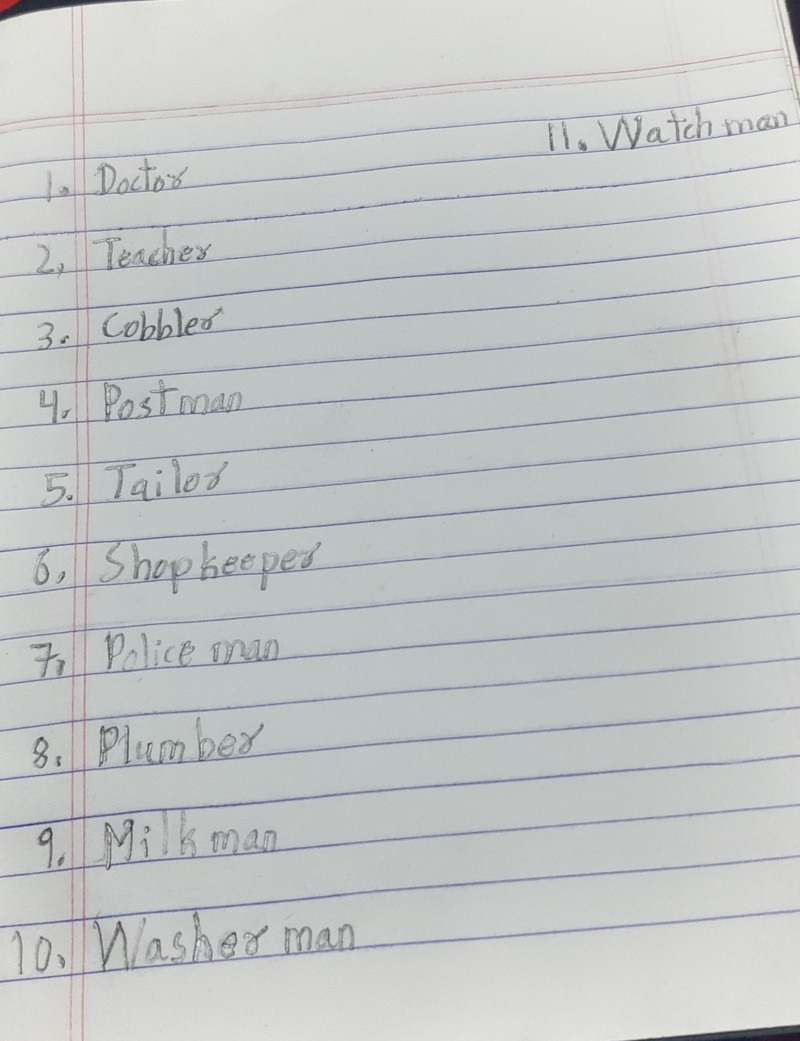 11. Watch man
1. Doctor
2, Teacher
3. Cobbler
4. Postman
5. Tailor
6, Shopkeeper
7. Police man
8. Plumber
9. Milkman
10. Washer man